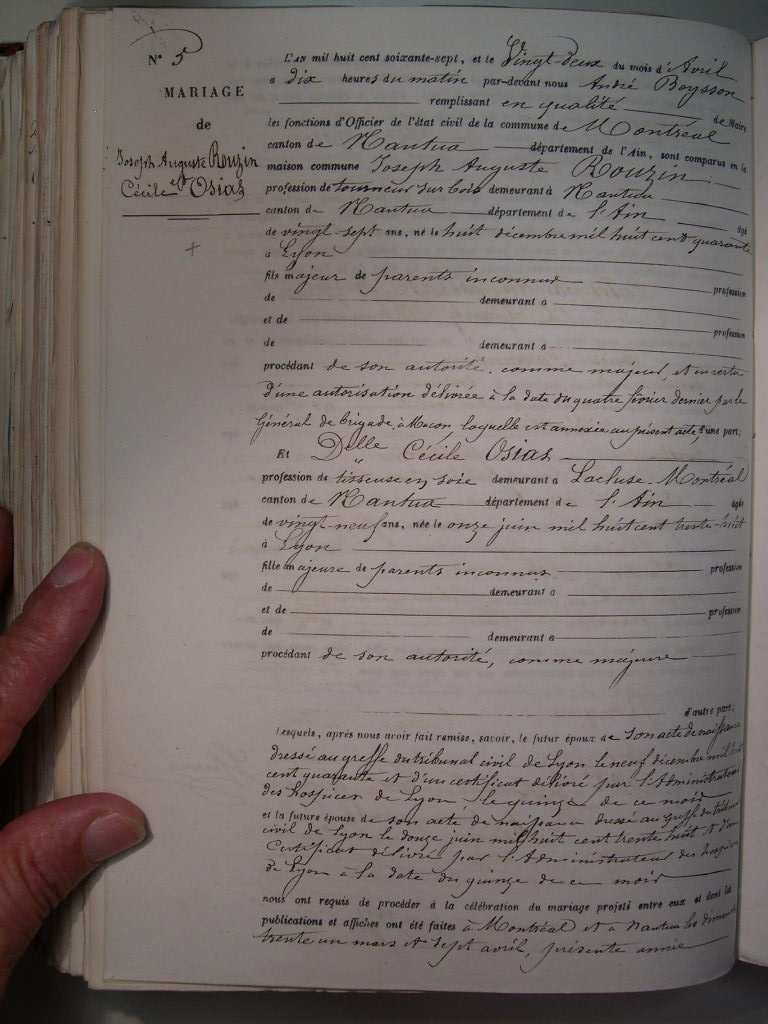 N° 5
MARIAGE
de
Joseph Auguste Rouzin
et
Cécile Osias
L'AN mil huit cent soixante-sept, et le Vingt-deux du mois d'Avril
a dix heures du matin par-devant nous André Boysson
remplissant en qualité de Maire
les fonctions d'Officier de l'état civil de la commune de Montréal
canton de Nantua département de l'Ain, sont comparus en la
maison commune Joseph Auguste Rouzin
profession de tourneur sur bois demeurant à Nantua
canton de Nantua département de l'Ain âgé
de vingt sept ans, né le huit décembre mil huit cent quarante
a Lyon
fils majeur de parents inconnus profession
de demeurant a
et de profession
de demeurant a
procédant de son autorité, comme majeur, et en vertu
d'une autorisation délivrée à la date du quatre février dernier par le
Général de brigade, à Macon, laquelle est annexée au présent acte, d'une part;
Et Delle Cécile Osias
profession de tisseuse en soie demeurant a Lacluse-Montréal
canton de Nantua département de l'Ain âgée
de vingt-neuf ans, née le onze juin mil huit cent trente-huit
à Lyon
fille majeure de parents inconnus profession
de demeurant a
et de profession
de demeurant a
procédant de son autorité, comme majeure
d'autre part;
Lesquels, après nous avoir fait remise, savoir, le futur époux de son acte de naissance
dressé au greffe du tribunal civil de Lyon le neuf décembre mil huit
cent quarante et d'un certificat délivré par l'Administrateur
des hospices de Lyon le quinze de ce mois
et la future épouse de son acte de naissance dressé au greffe du tribunal
civil de Lyon le douze juin mil huit cent trente huit et d'un
certificat délivré par l'Administrateur des hospices
de Lyon à la date du quinze de ce mois
nous ont requis de procéder à la célébration du mariage projeté entre eux et dont les
publications et affiches ont été faites à Montréal et à Nantua les dimanches
trente un mars et sept avril, présente année